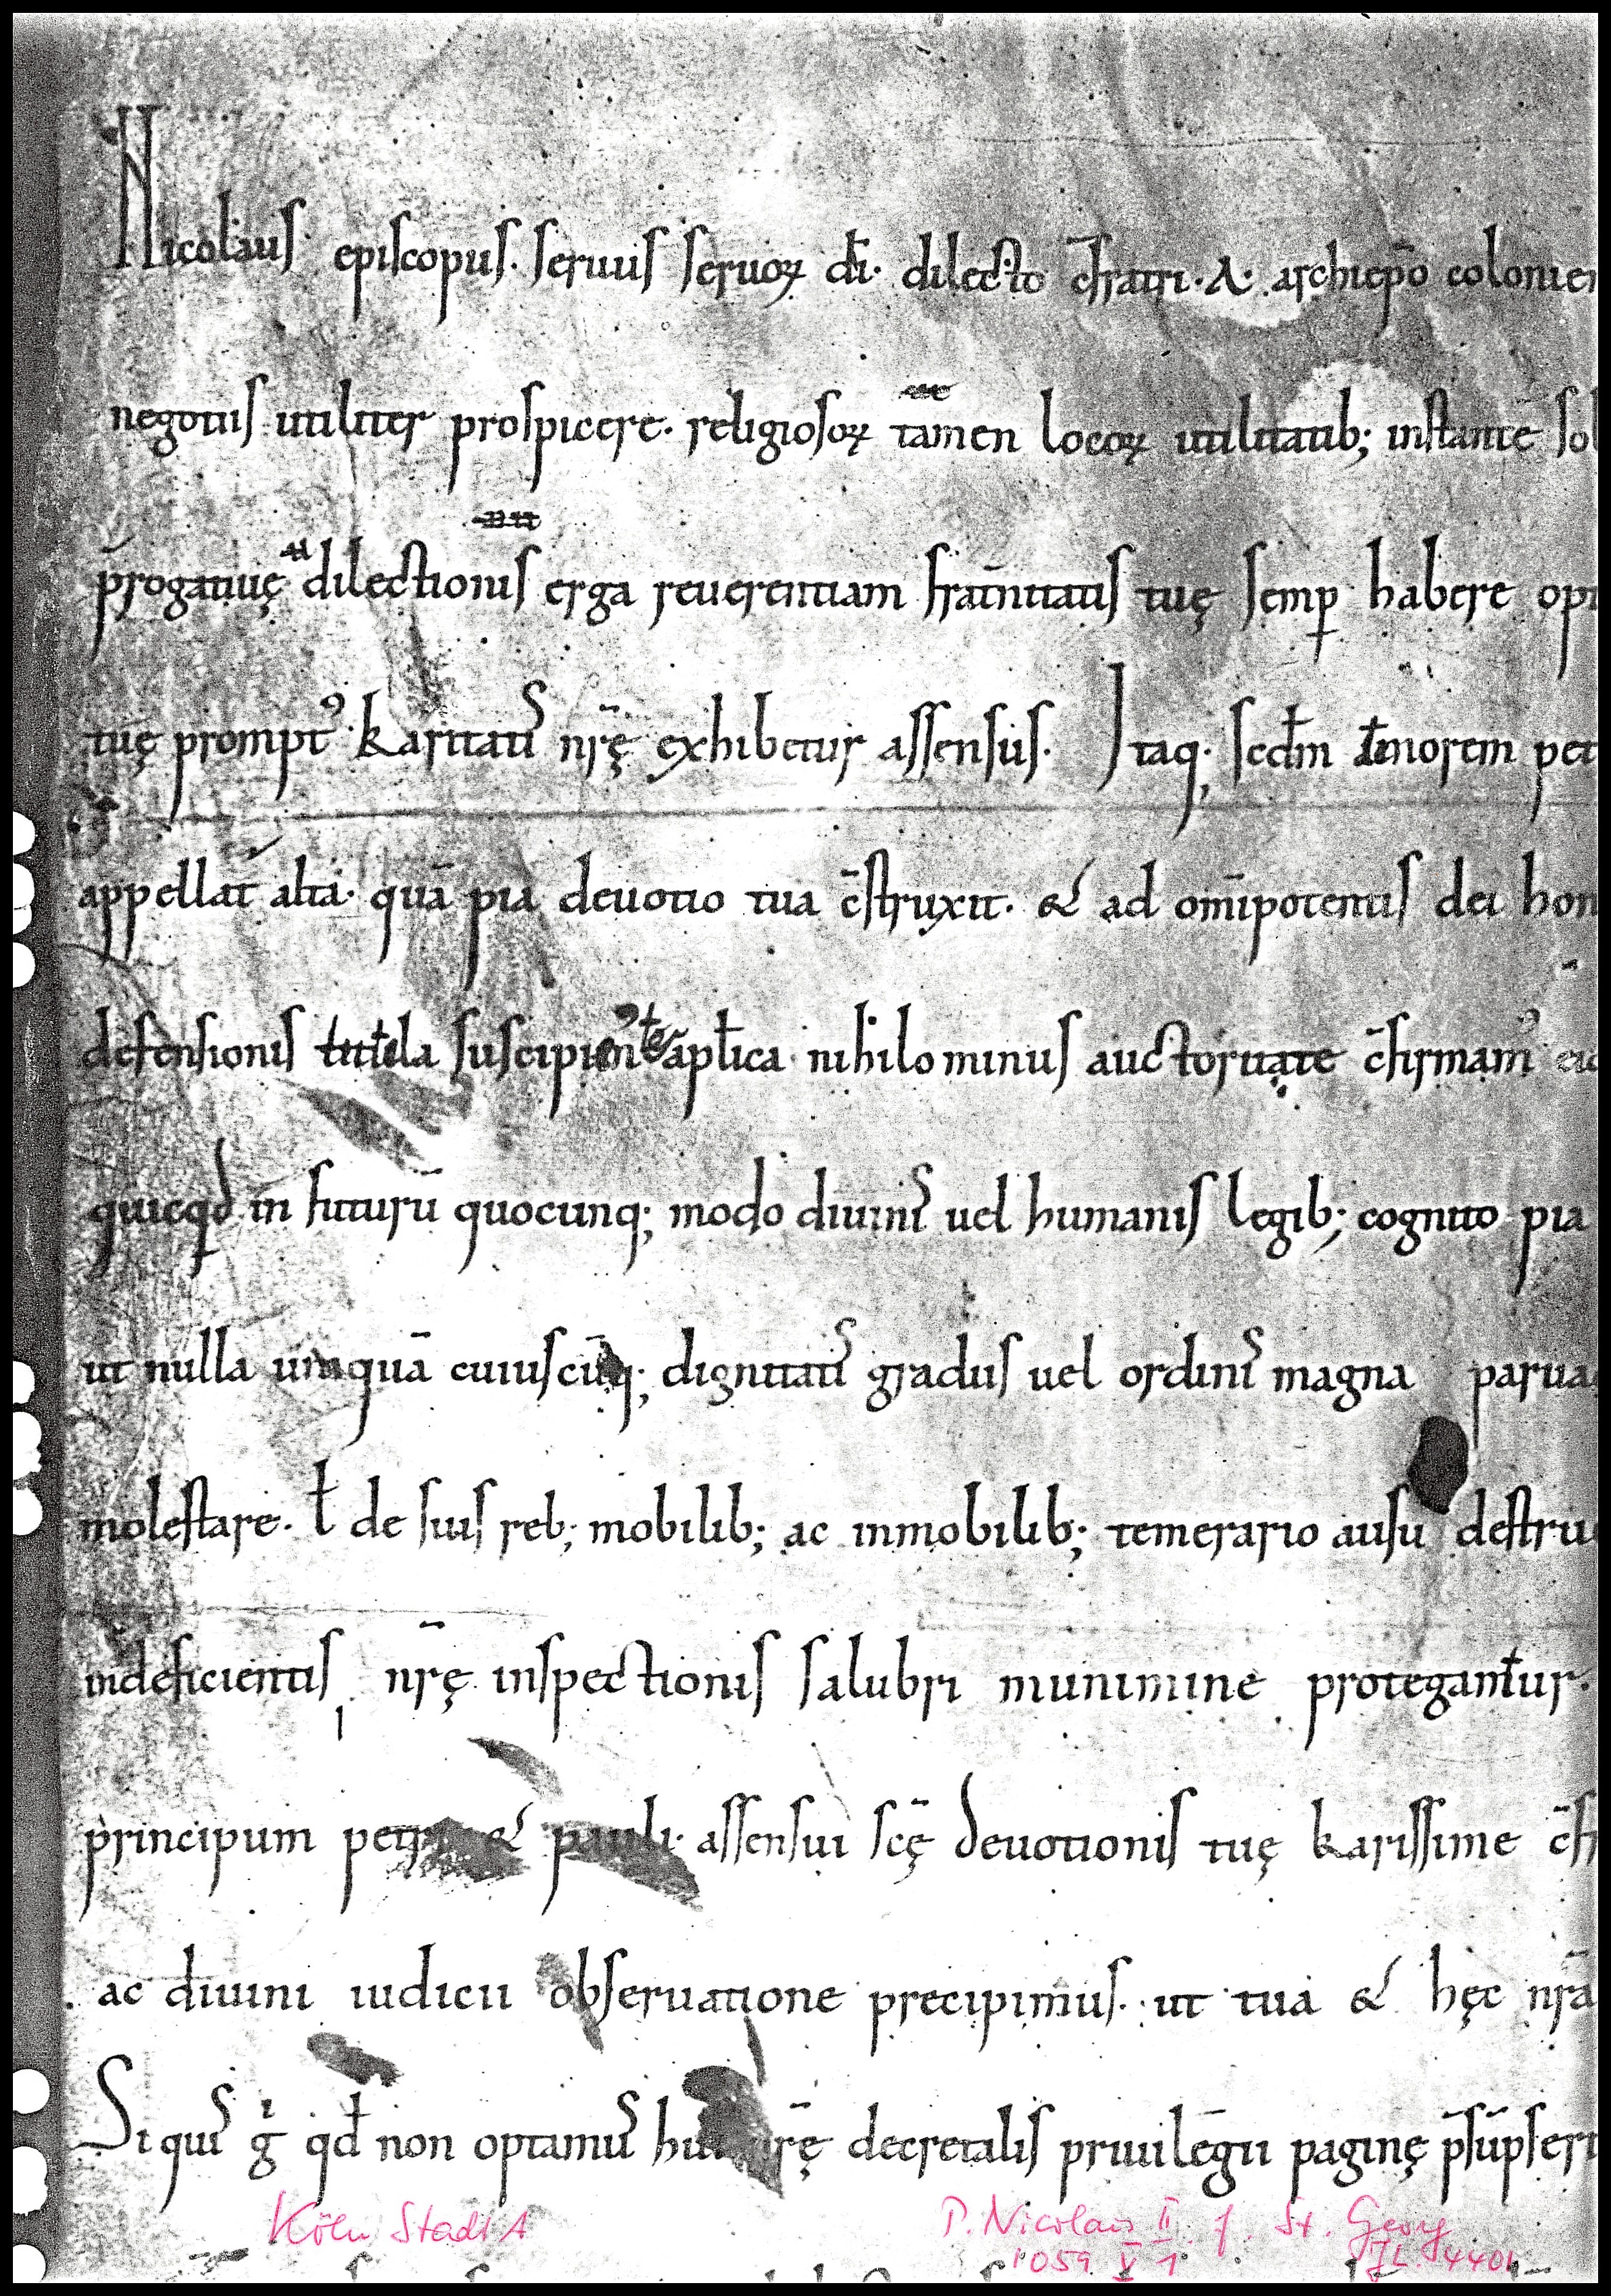 Nicolaus episcopus. seruus seruoꝝ di̅. dilecto c̅fratri. A. archiep̅o colonien
negotiis utiliter prospicere. religiosoꝝ tam̅en locoꝝ utilitatib; instante̅ sol
p̅rogatiuę dilectionis erga reuerentiam frat̅nitatis tuę semꝑ habere opt
tuę prompt᾿ karitatis nr̅ę exhibetur assensus. Itaq; scd̅m tenorem pet
appellat̅ alia. qua̅ pia deuotio tua c̅struxit. & ad om̅ipotentis dei hon
defensionis tutela suscipim᾿ & ap̅lica nihilominus auctoritate c̅firmam᾿
quicqd̅ in futuru̅ quocunq; modo diuinis uel humanis legib; cognito pia
ut nulla umqua̅ cuiuscu̅q; dignitatis gradus uel ordinis magna parua
molestare. ł de suis reb; mobilib; ac inmobilib; temerario ausu destru
indeficientis nr̅ę inspectionis salubri munimine protegantur.
principum petri & pauli. assensui sc̅ę deuotionis tuę karissime c̅f
ac diuini iudicii obseruatione precipimus. ut tua & hęc nr̅a
Si quis gͥ qd̅ non optamus hui᾿ nr̅ę decretalis priuilegii paginę p̅su̅pseri
Köln StadtA
P. Nicolaus II. f. St. Georg
1059 V 1 JL. 4401